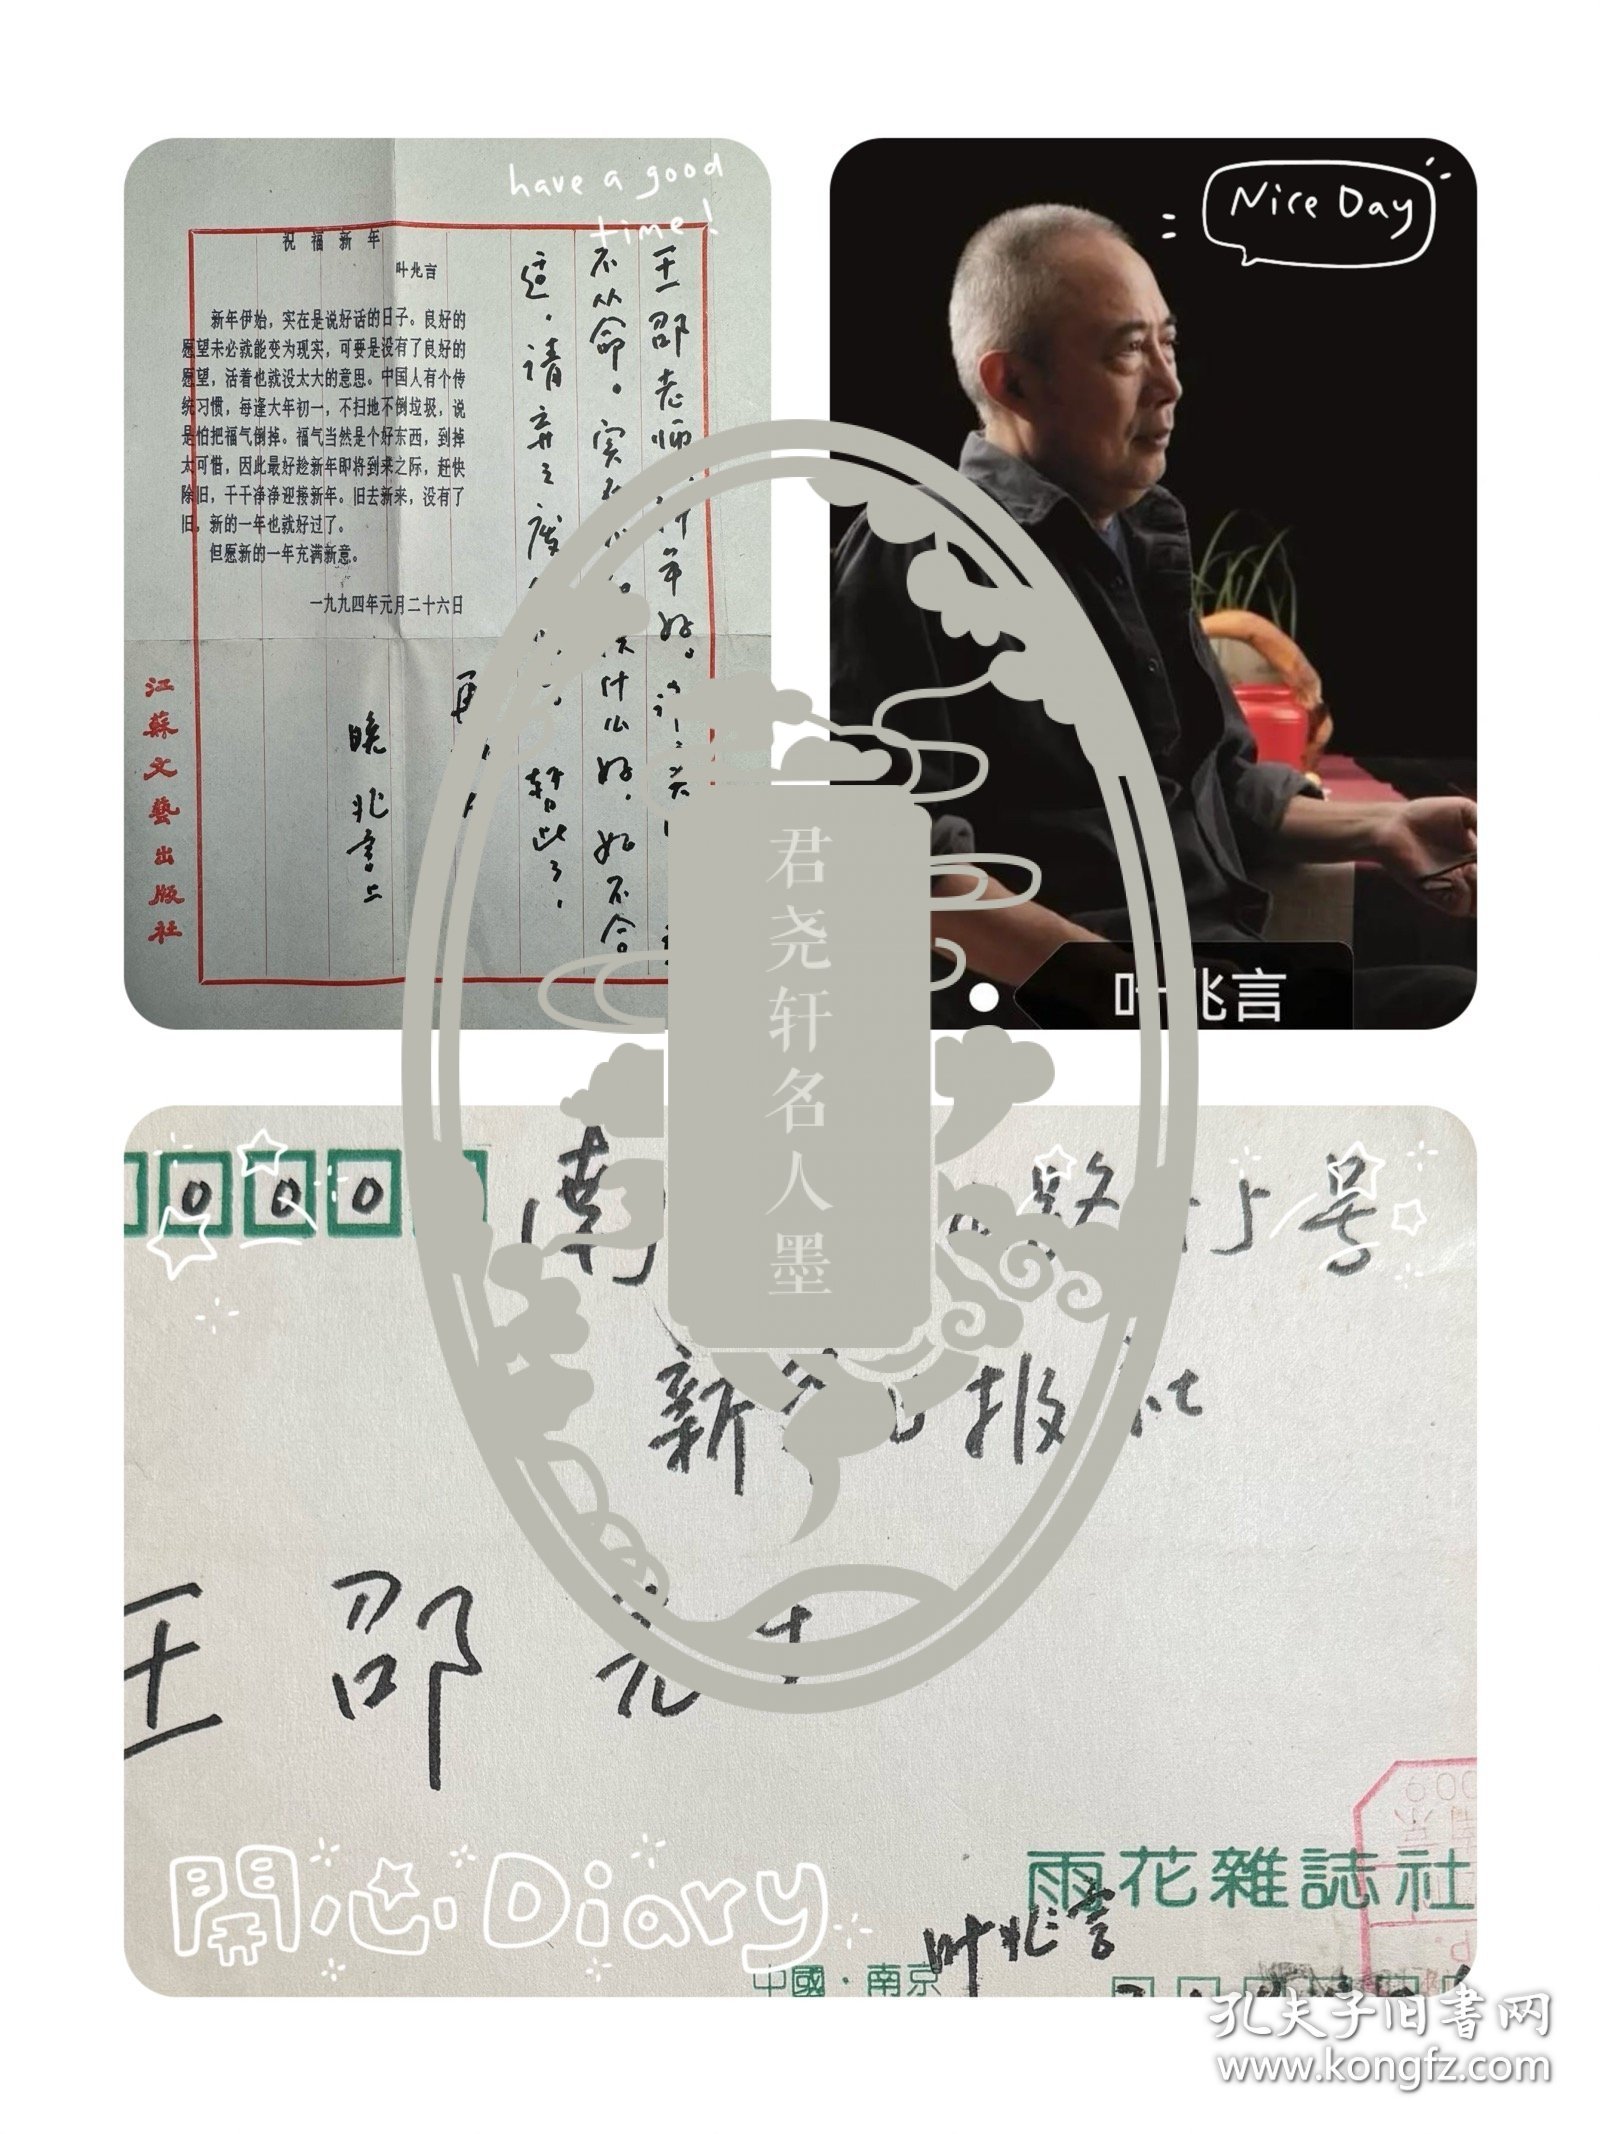 have a good
time!
祝福新年
叶兆言
新年伊始，实在是说好话的日子。良好的
愿望未必就能变为现实，可要是没有了良好的
愿望，活着也就没太大的意思。中国人有个传
统习惯，每逢大年初一，不扫地不倒垃圾，说
是怕把福气倒掉。福气当然是个好东西，到掉
太可惜，因此最好趁新年即将到来之际，赶快
除旧，干干净净迎接新年。旧去新来，没有了
旧，新的一年也就好过了。
但愿新的一年充满新意。
一九九四年元月二十六日
王邵老师
年好。
不从命。实
什么好，如不合
适，请弃之废
暂此了，
晚 兆言上
江蘇文藝出版社
Nice Day
叶兆言
君尧轩名人墨
0 0 0
南 路 号
新 报社
王邵
開心Diary
雨花雜誌社
叶兆言
中國·南京
孔夫子旧书网
www.kongfz.com